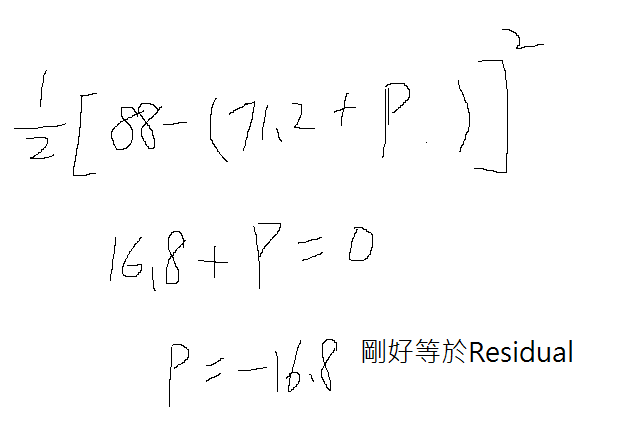 1/2 [88-(71.2+P)]²
16.8+P=0
P=-16.8 剛好等於Residual